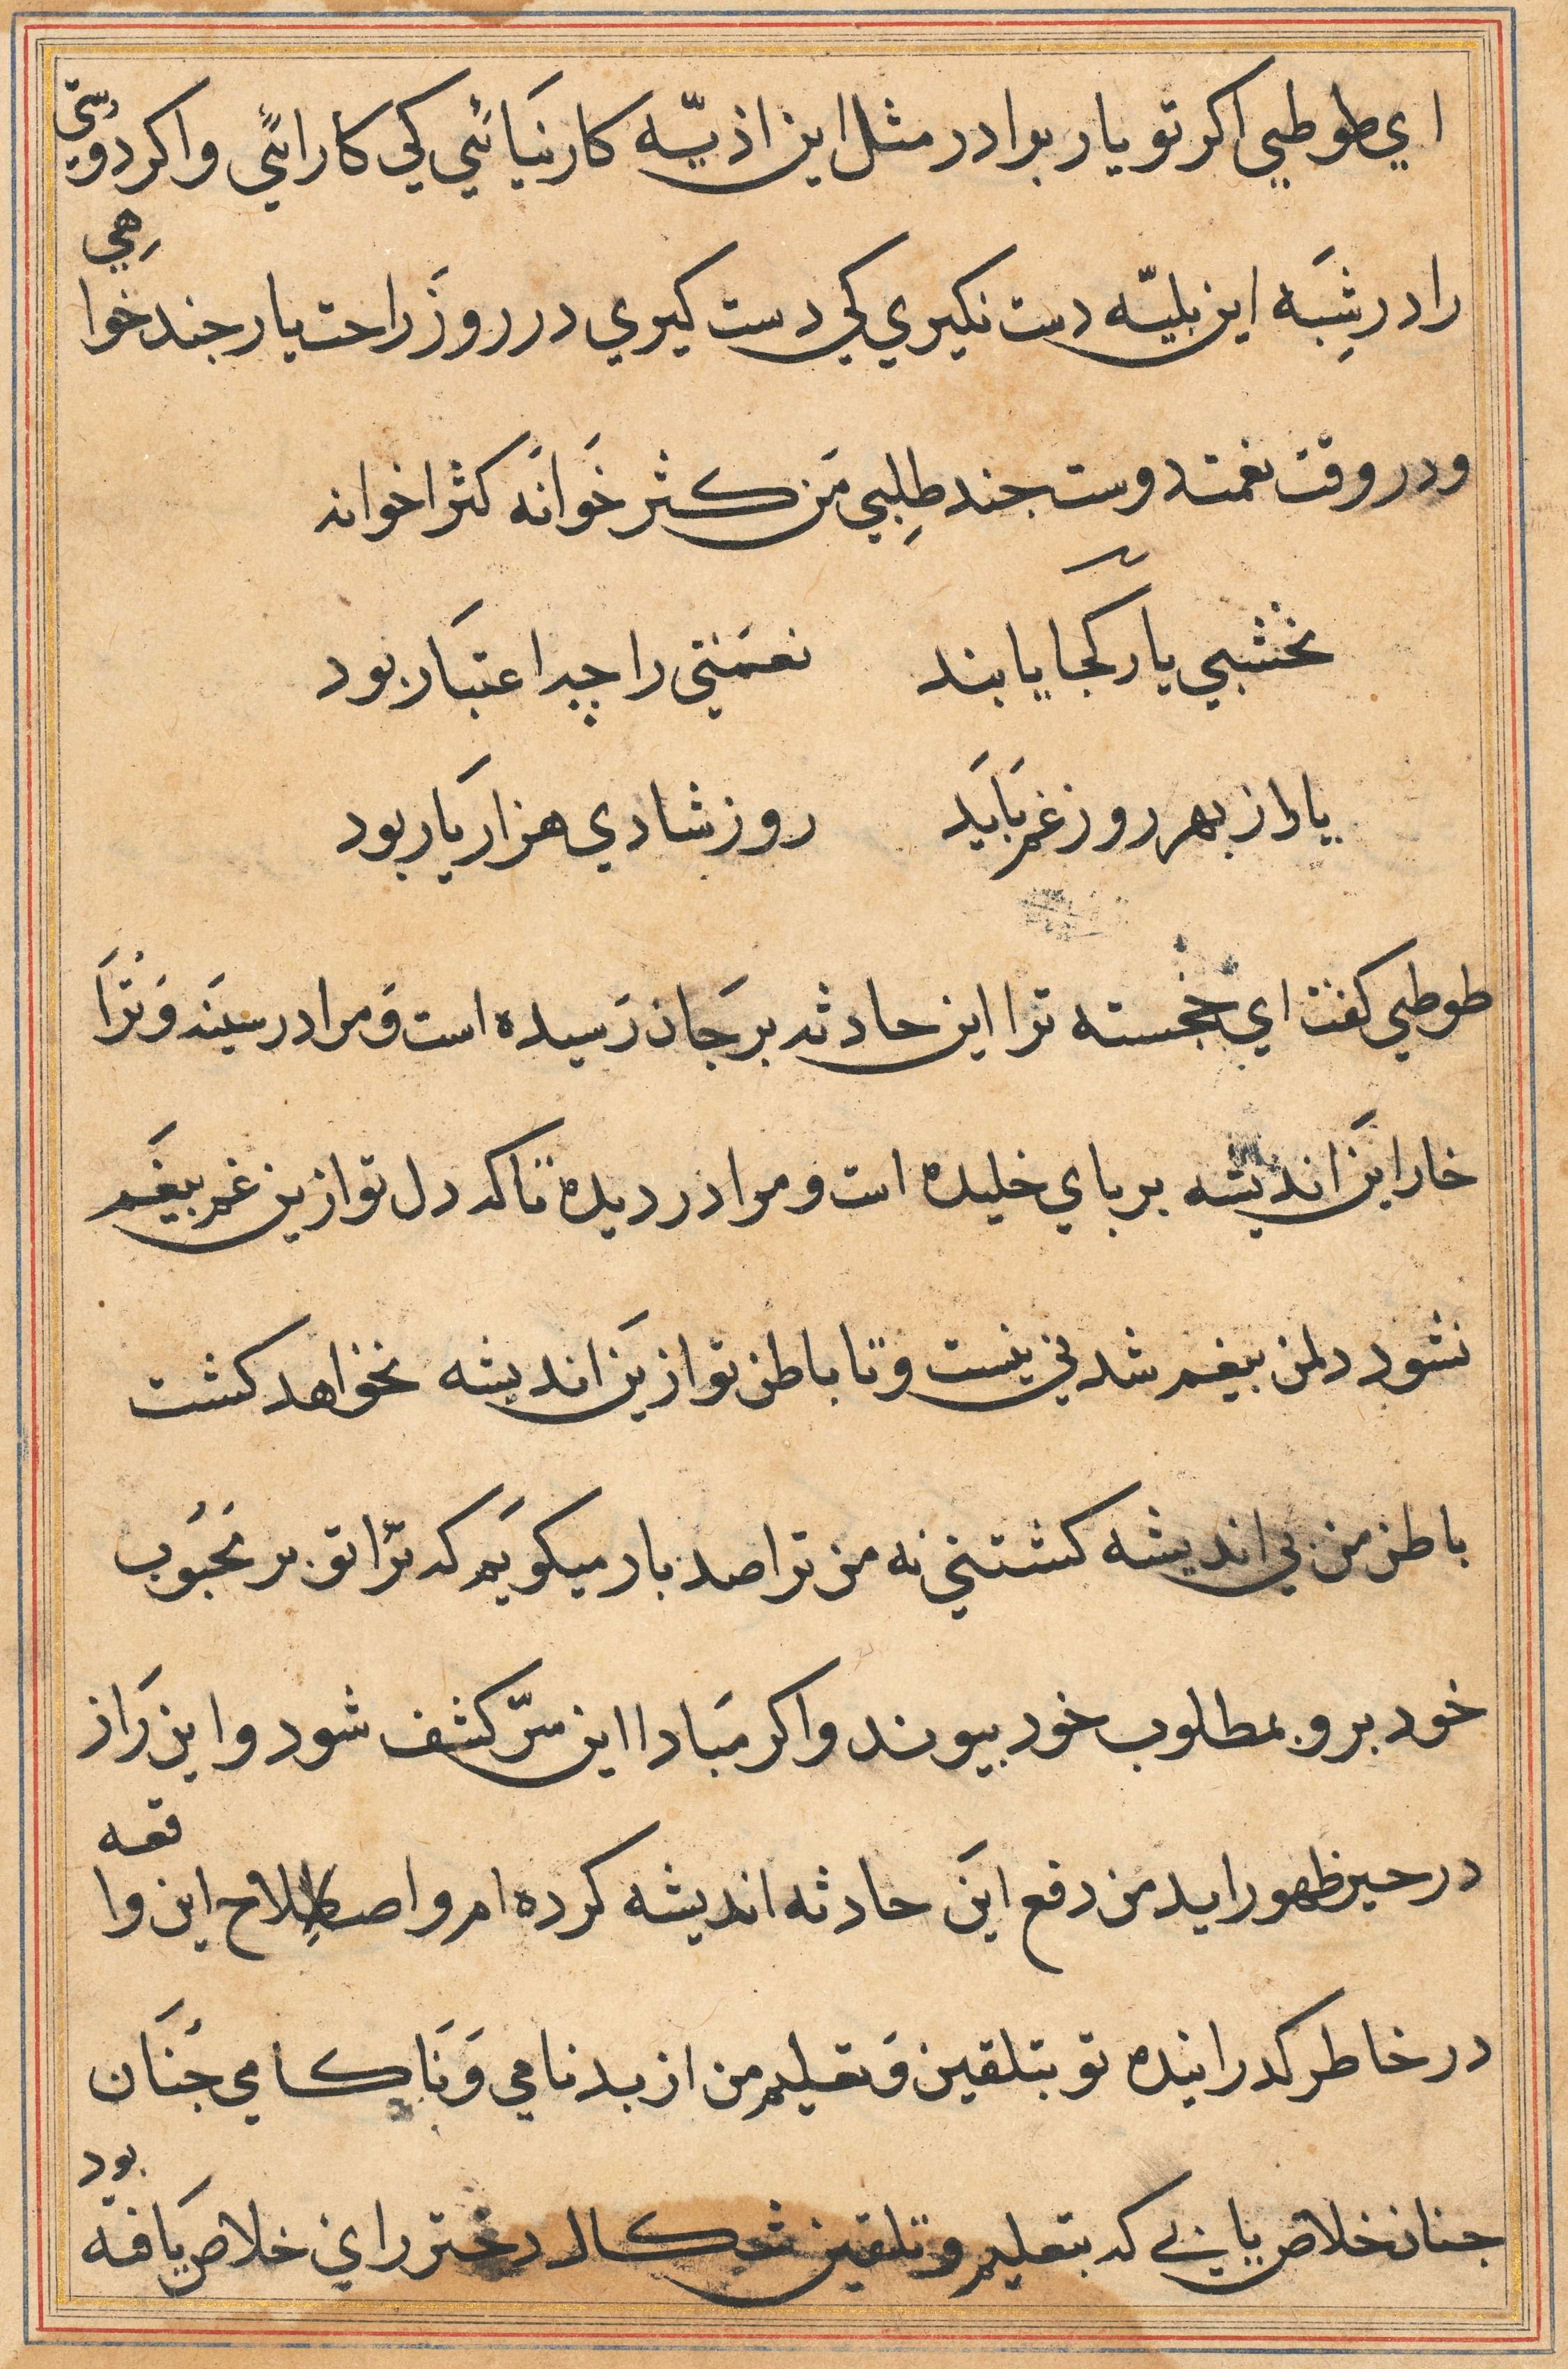 اي طوطي اكر تو يار برادر مثل اين اذيّه كار نيائي كي كار ائي و اكر دوستي
را در شبه اين بليّه دست نكيري كي دست كيري در روز راحت يار جند خواهي
و در وقت نعمت دوست جند طلبي من كثر خوانه كثر اخوانه
نخشبي يار كجا يابند نعمتي را چه اعتبار بود
يار از بهر روز غم بايد روز شادي هزار يار بود
طوطي كفت اي خجسته ترا اين حادثه بر جان رسيده است و مرا در سينه و ترا
خار اين انديشه بر باي خليده است و مرا در ديده تا كه دل تو ازين غم بيغم
نشود دل من بيغم شدني نيست و تا باطن تو ازين انديشه نخواهد كشت
باطن من بي انديشه كشتني نه من ترا صد بار ميكويم كه ترا تو بر محبوب
خود برو بمطلوب خود بيوند و اكر مبادا اين سرّ كشف شود و اين راز
در حيز ظهور ايد من دفع اين حادثه انديشه كرده ام و اصطلاح اين واقعه
در خاطر كدرانيده تو بتلقين و تعليم من از بدنامي و ناكامي جنان
جنان خلاص يابي كه بتعليم و تلقين شكال دختر راي خلاص يافته بود